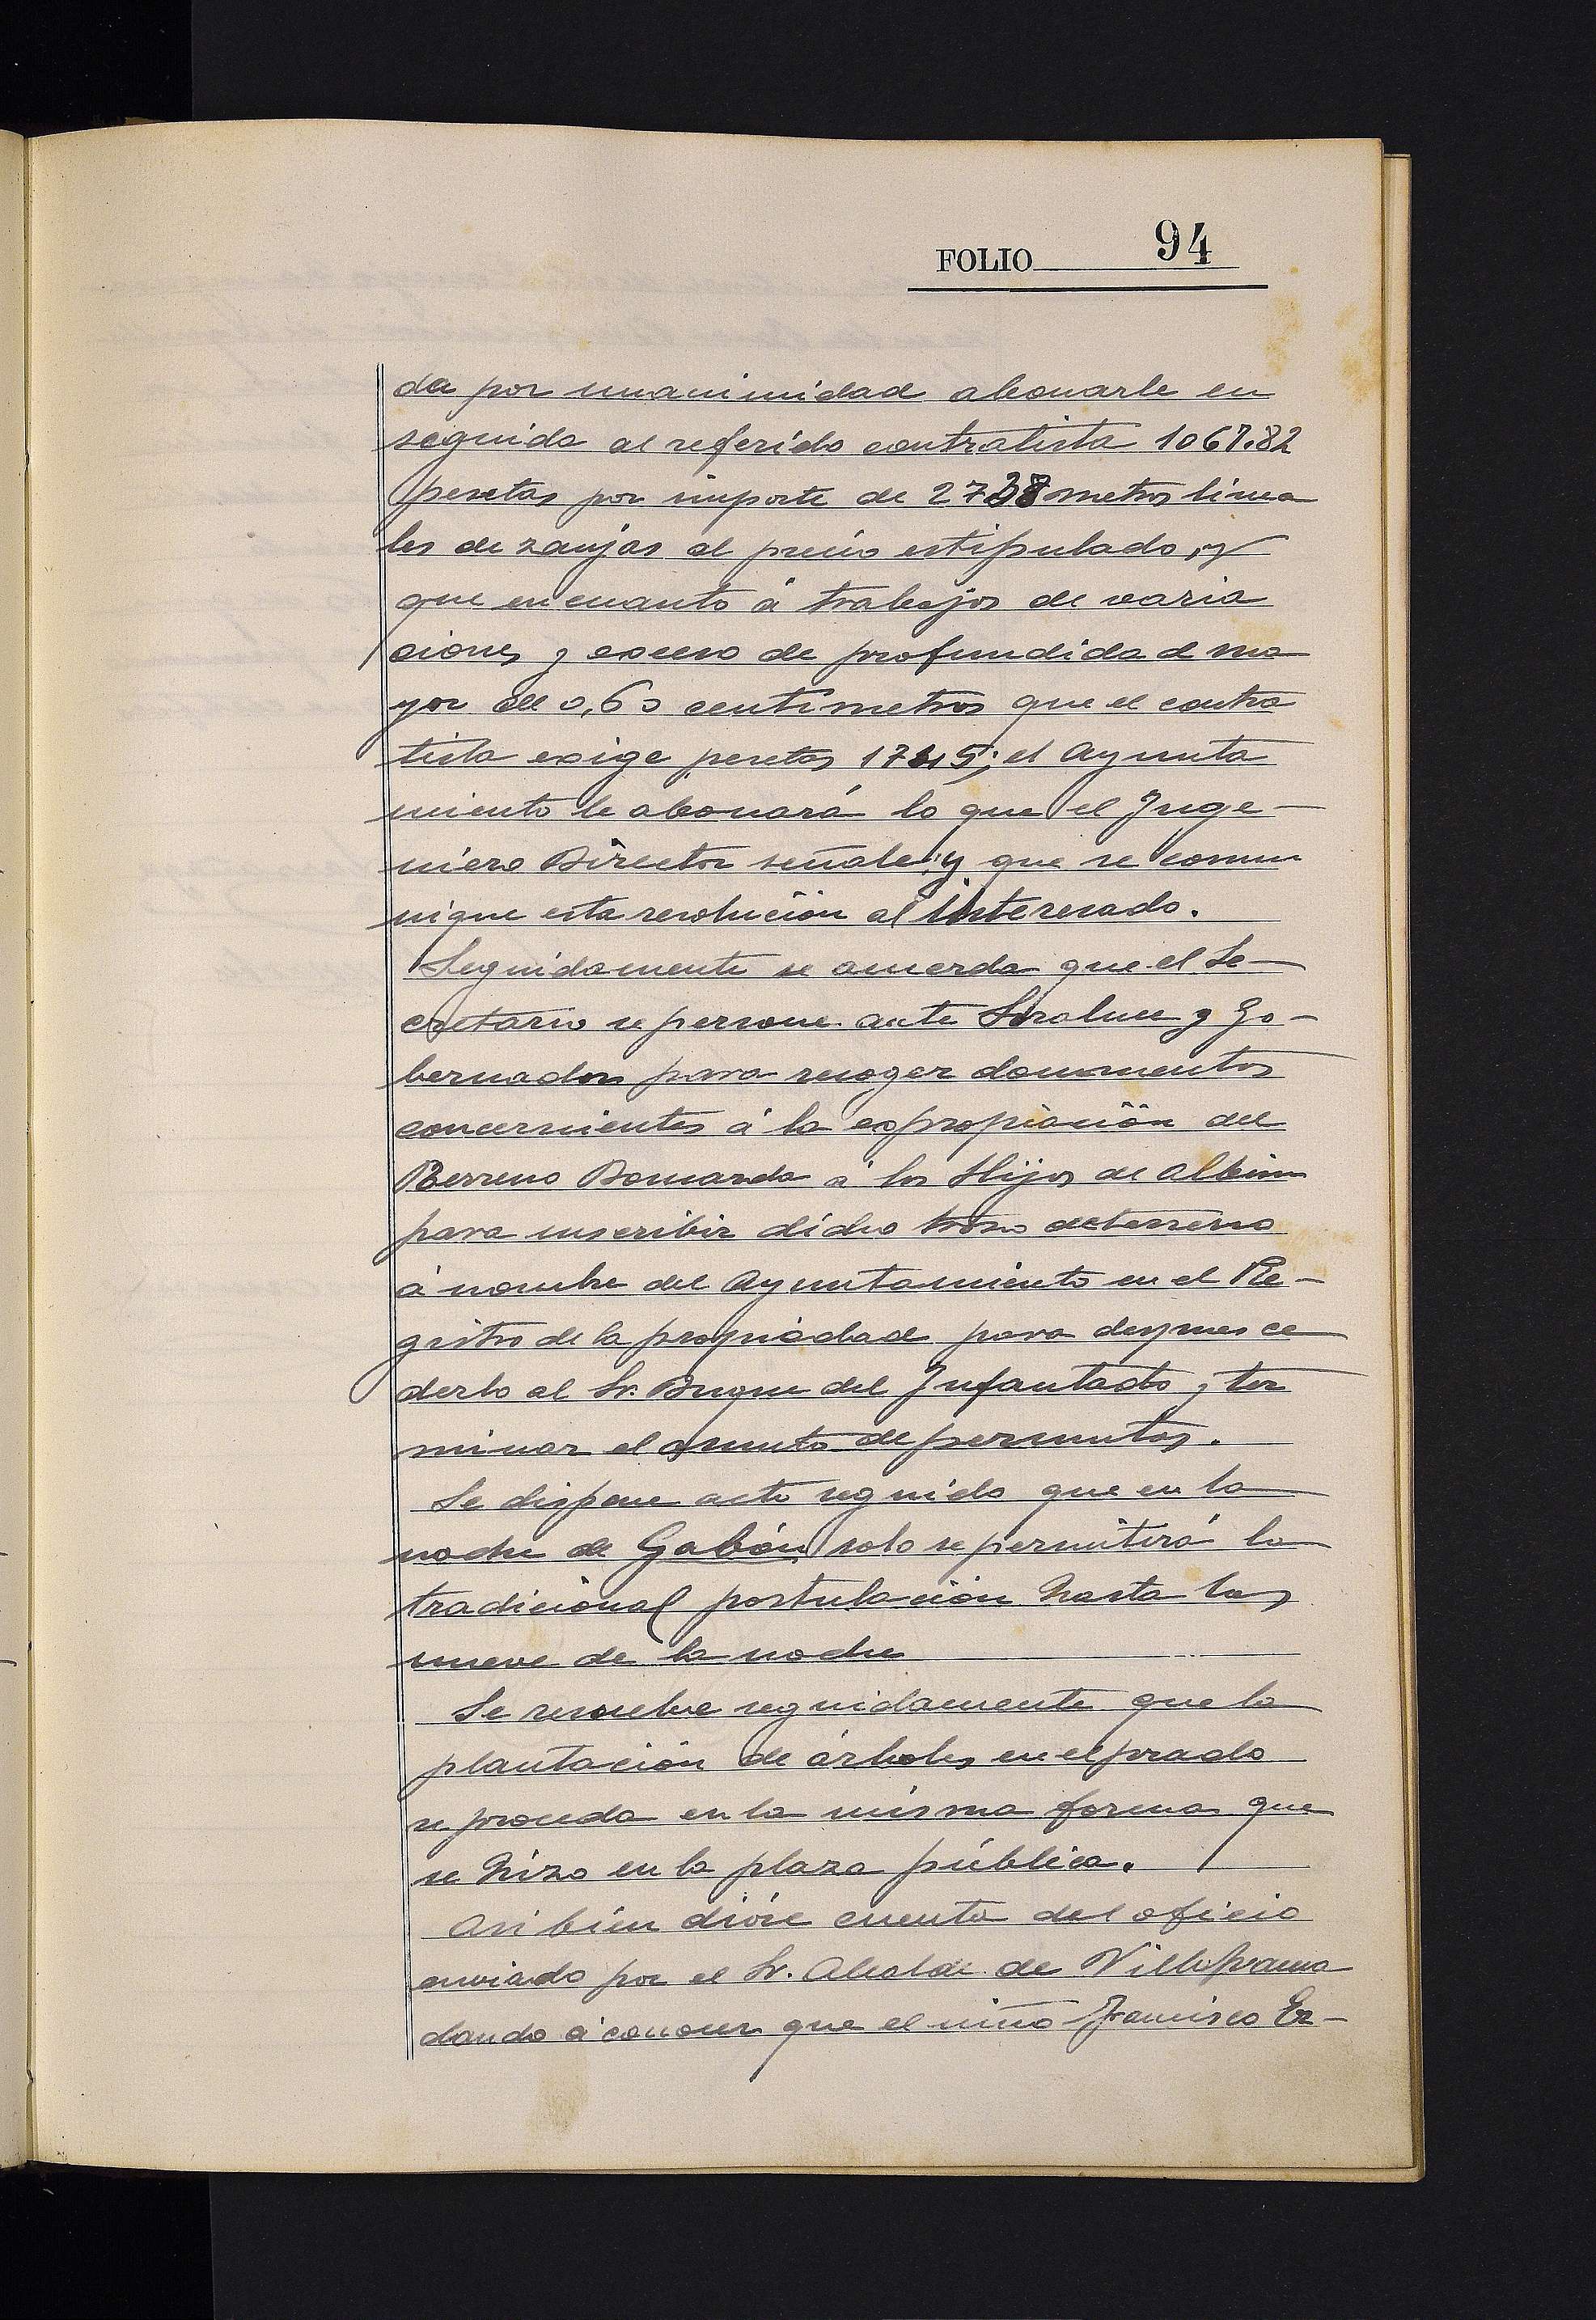 FOLIO 94
da por unanimidad abonarle en
seguida al referido contratista 1067.82
pesetas por importe de 2738 metros linea
les de zanjas al precio estipulado, y
que en cuanto á trabajos de varia
ciones y exceso de profundidad ma
yor de 0,60 centímetros que el contra
tista exige pesetas 1745; el Ayunta
miento le abonará lo que el Inge-
niero Director señale; y que se comu
nique esta resolución al interesado.
Seguidamente se acuerda que el Se-
cretario se persone ante Soraluce y Go-
bernador para recoger documentos
concernientes á la expropiación del
Terreno á los Hijos de
para inscribir dicho trozo de terreno
á nombre del Ayuntamiento en el Re-
gistro de la propiedad para despues ce
derlo al Sr. Duque del Infantado y ter
minar el asunto de permutas.
Se dispone acto seguido que en la
noche de Gabón solo se permitirá la
tradicional postulación hasta las
nueve de la noche
Se resuelve seguidamente que la
plantación de árboles en el prado
se proceda en la misma forma que
se hizo en la plaza pública.
Asi bien dióse cuenta del oficio
enviado por el Sr. Alcalde de Villafranca
dando á conocer que el niño Francisco Er-